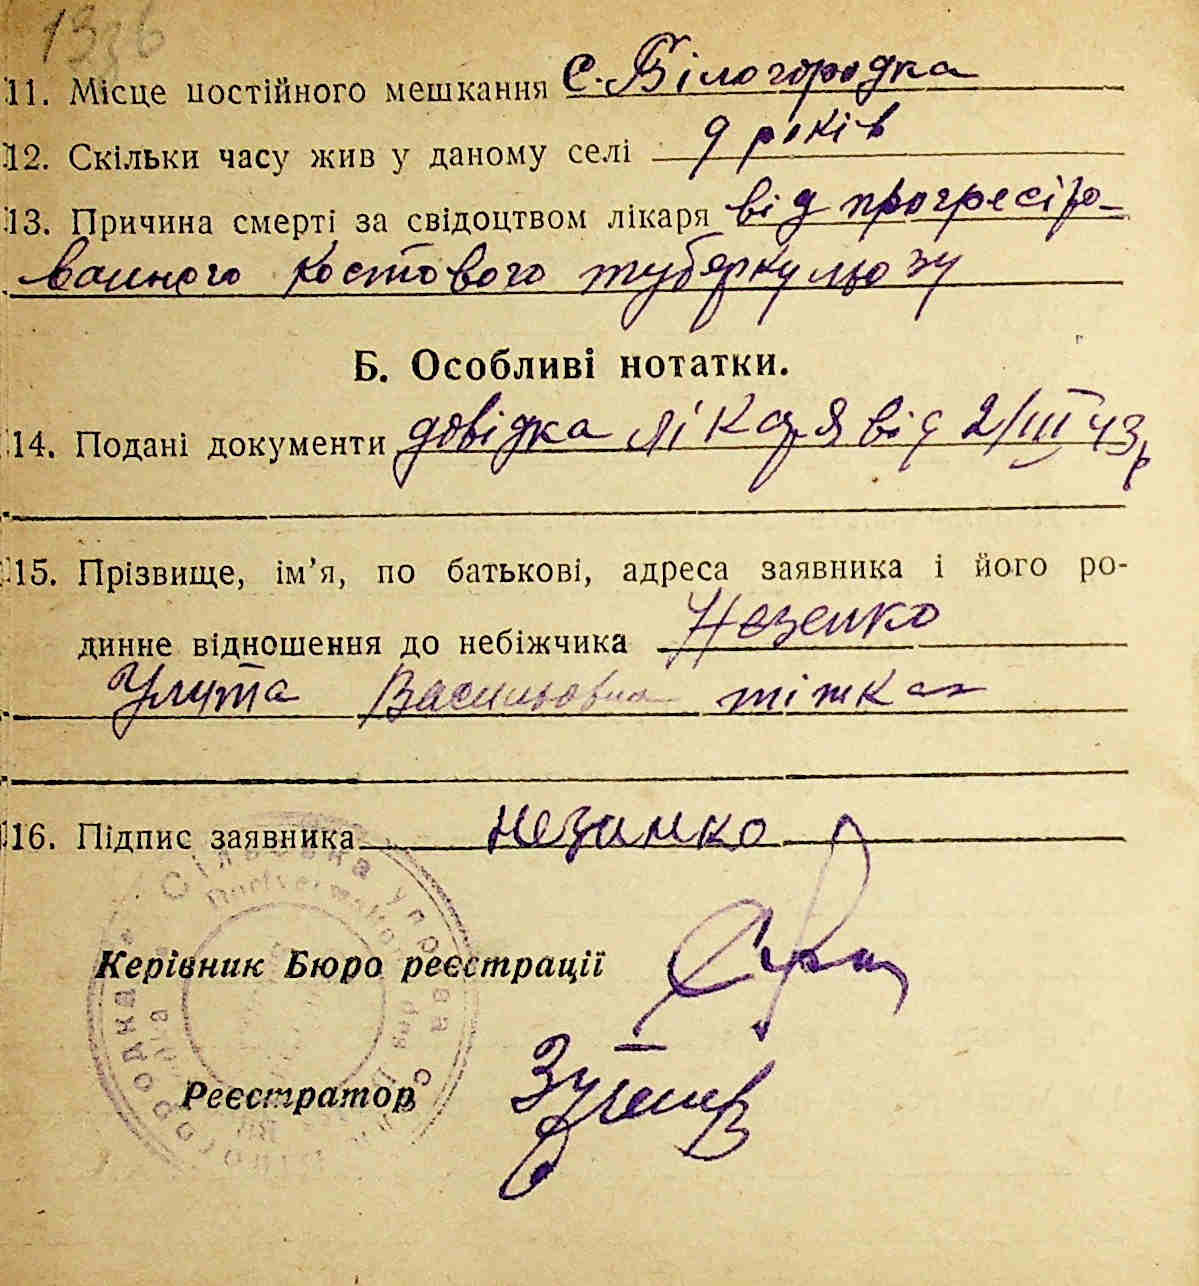 11. Місце постійного мешкання с. Білогородка
12. Скільки часу жив у даному селі 9 років
13. Причина смерті за свідоцтвом лікаря від прогресіро-
ванного костового туберкульозу
Б. Особливі нотатки.
14. Подані документи довідка лікаря від 2/III 43 р
15. Прізвище, ім’я, по батькові, адреса заявника і його ро-
динне відношення до небіжчика Незенко
Улита Васильовна тітка
16. Підпис заявника Незинко
Керівник Бюро реєстрації
Реєстратор
Сільська управа с. Білогородка